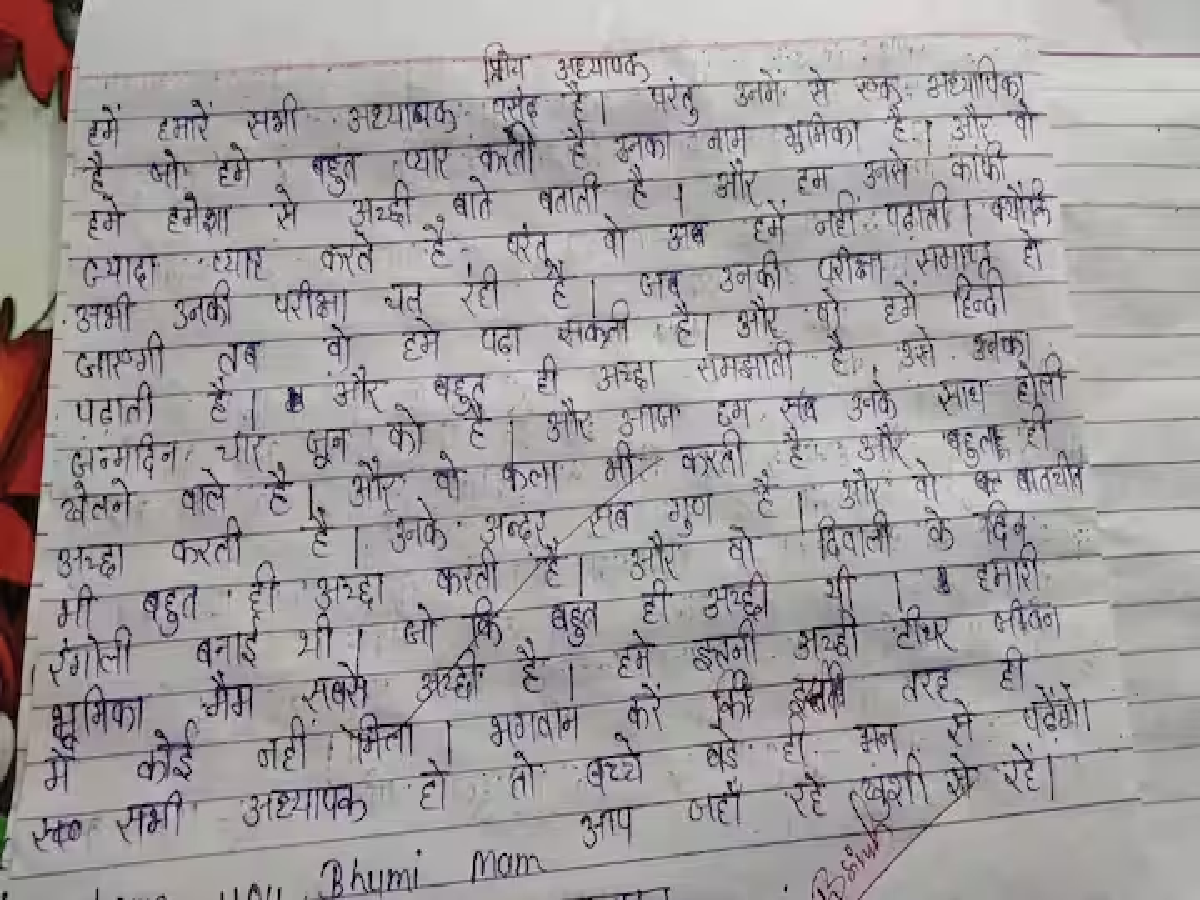 प्रिय अध्यापक
हमें हमारे सभी अध्यापक पसंद है। परंतु उनमें से एक अध्यापिका
है जो हमे बहुत प्यार करती है उनका नाम भुमिका है। और वो
हमे हमेशा से अच्छी बाते बताती है। और हम उनसे काफी
ज्यादा प्यार करते है परंतु वो अब हमें नहीं पढाती। क्योंकि
अभी उनकी परीक्षा चल रही है। जब उनकी परीक्षा समाप्त हो
जाएगी तब वो हमे पढा सकती है। और वो हमें हिन्दी
पढ़ाती है। और बहुत ही अच्छा समझाती है उसे उनका
जन्मदिन चार जून को है। और आज हम सब उनके साथ होली
खेलने वाले है। और वो कला भी करती है और बहुत ही
अच्छा करती है। उनके अन्दर सब गुण है। और वो बातचीत
भी बहुत ही अच्छा करती है। और वो दिवाली के दिन
रंगोली बनाई थी। जो कि बहुत ही अच्छी थी। हमारी
भूमिका मैम सबसे अच्छी है। हमे इतनी अच्छी टीचर जीवन
मे कोई नहीं मिला। भगवान करें कि इसी तरह ही
सभी अध्यापक हो तो बच्चे बडे ही मन से पढेंगे।
आप जहाँ रहे खुशी से रहें।
you Bhumi mam